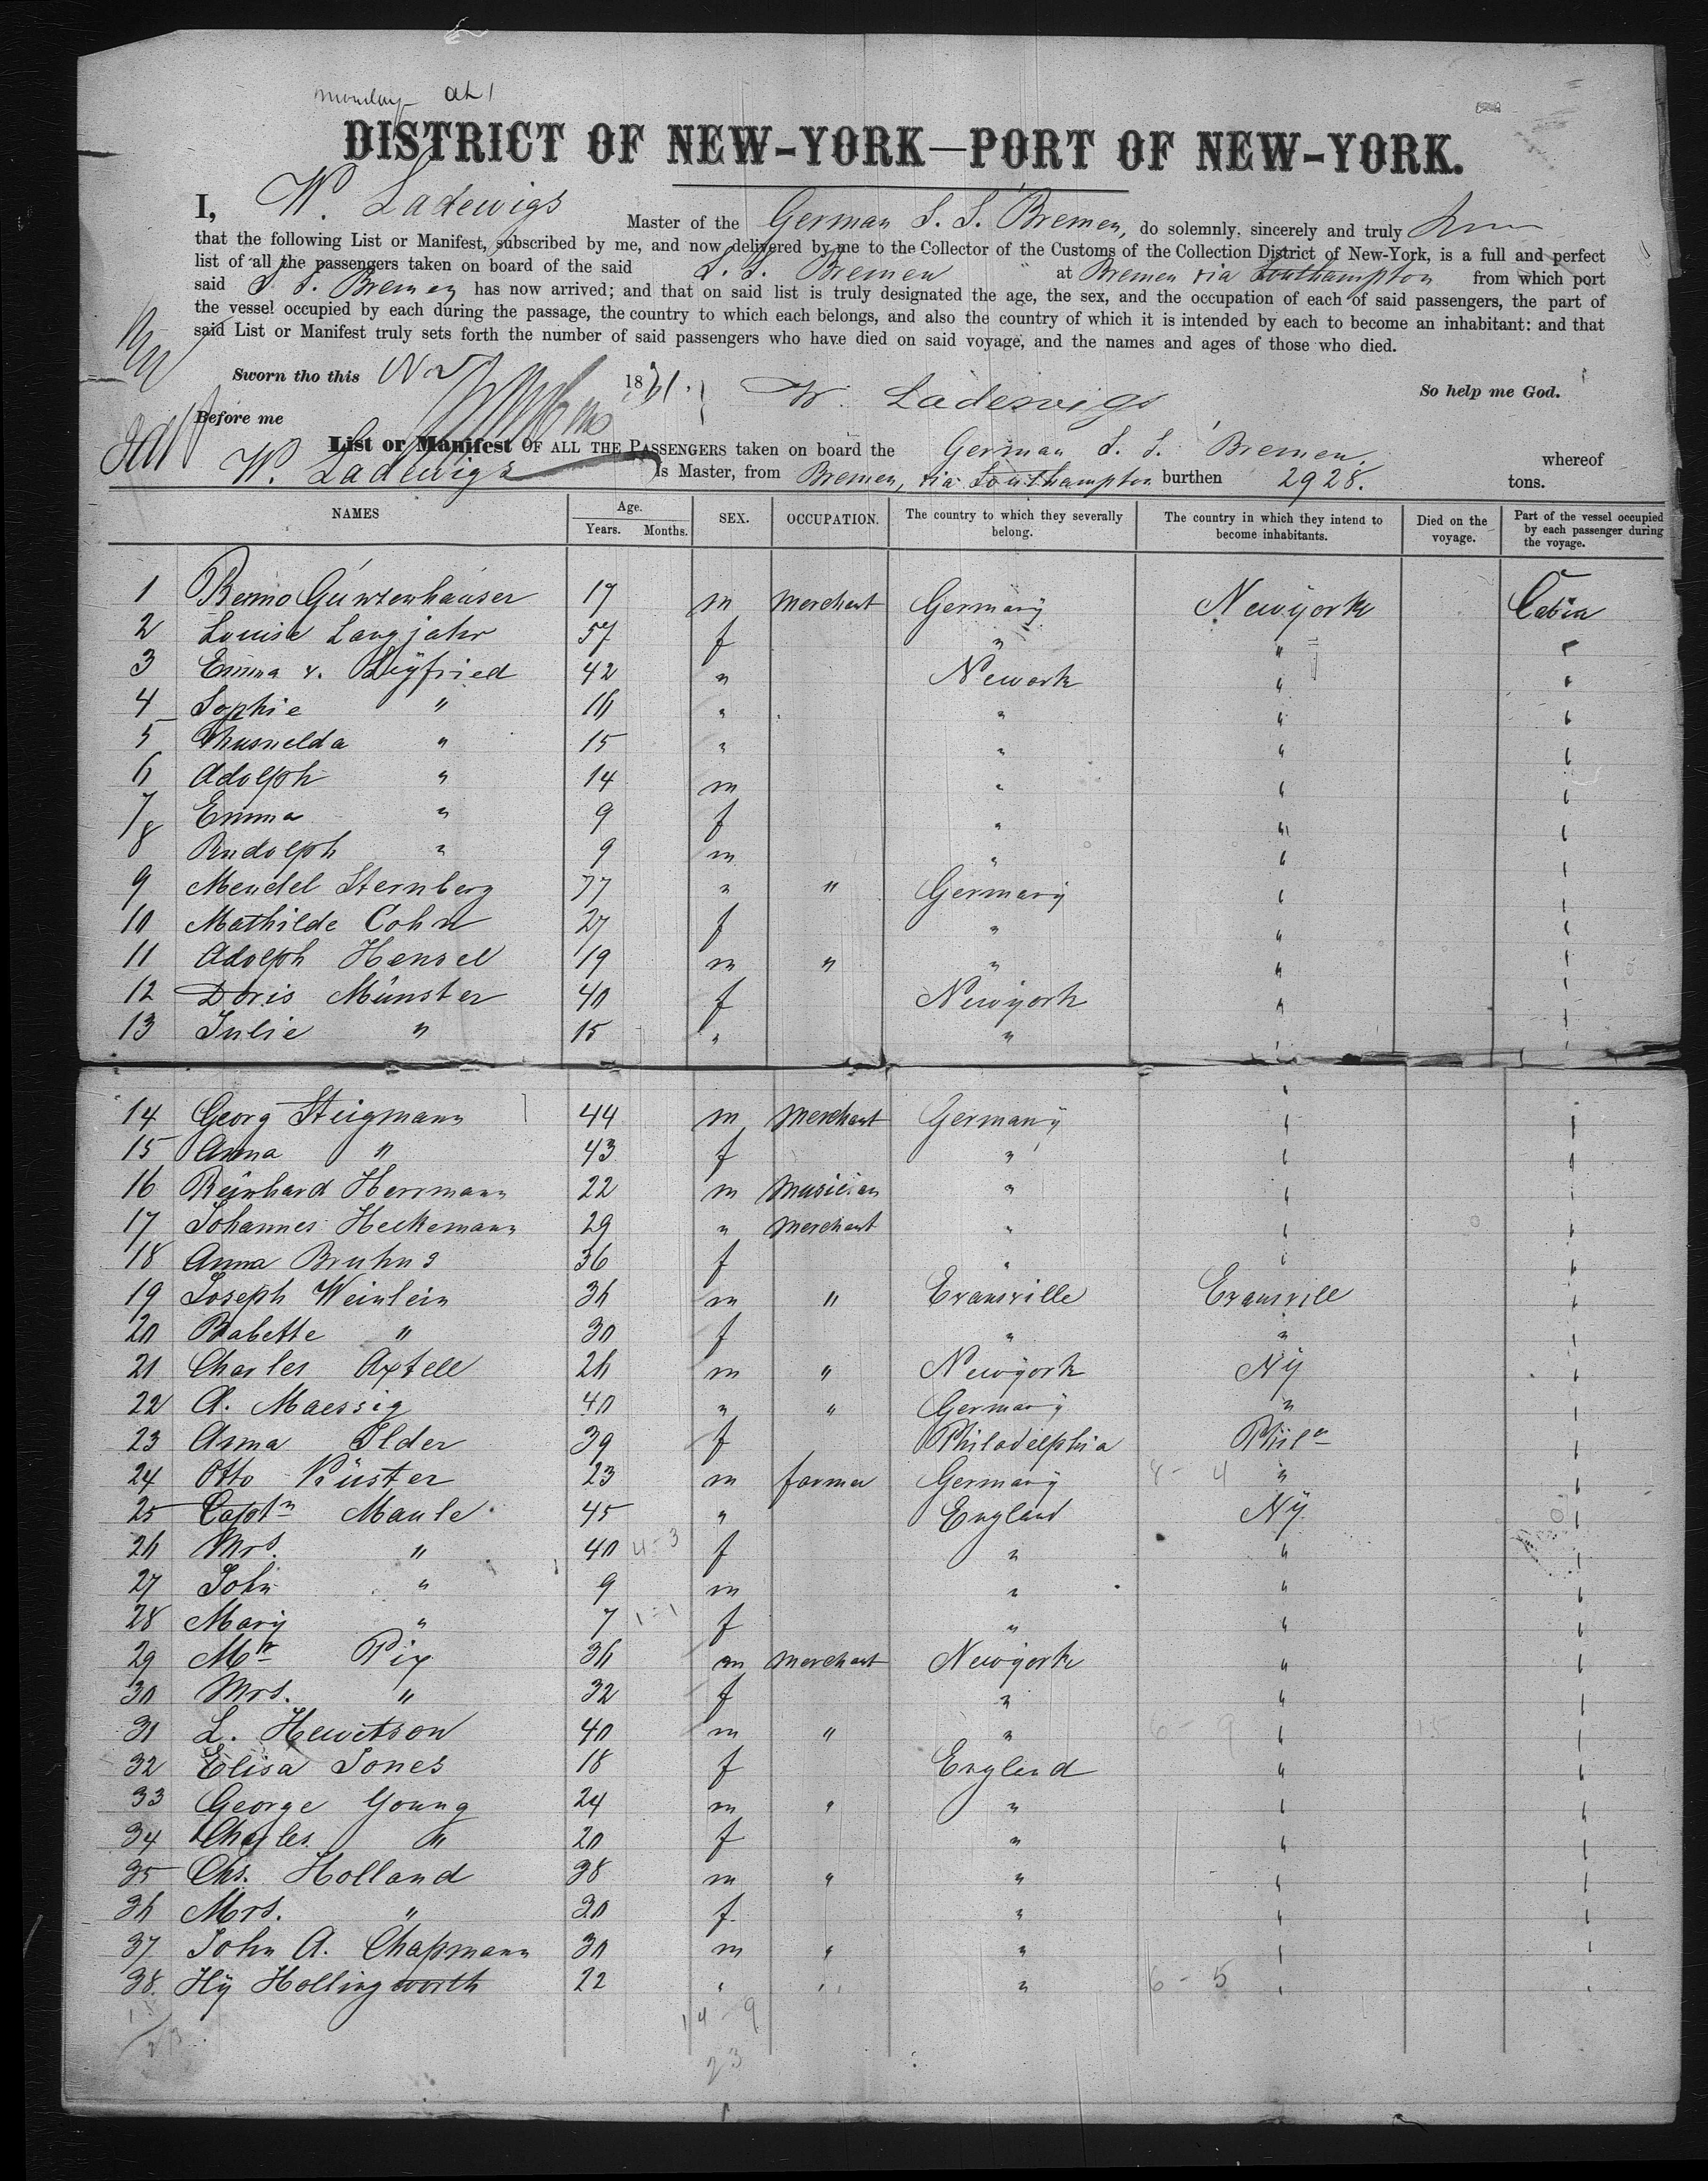 monday at 1
DISTRICT OF NEW-YORK—PORT OF NEW-YORK.
I, W. Ladewigs Master of the German S. S. Bremen, do solemnly, sincerely and truly
that the following List or Manifest, subscribed by me, and now delivered by me to the Collector of the Customs of the Collection District of New-York, is a full and perfect
list of all the passengers taken on board of the said S. S. Bremen at Bremen via Southampton from which port
said S. S. Bremen has now arrived; and that on said list is truly designated the age, the sex, and the occupation of each of said passengers, the part of
the vessel occupied by each during the passage, the country to which each belongs, and also the country of which it is intended by each to become an inhabitant: and that
said List or Manifest truly sets forth the number of said passengers who have died on said voyage, and the names and ages of those who died.
Sworn tho this 1871. W. Ladewigs So help me God.
Before me
List or Manifest OF ALL THE PASSENGERS taken on board the German S. S. Bremen. whereof
W. Ladewigs is Master, from Bremen, via Southampton burthen 2928. tons.
NAMES Age. Years. Months. SEX. OCCUPATION. The country to which they severally belong. The country in which they intend to become inhabitants. Died on the voyage. Part of the vessel occupied by each passenger during the voyage.
1 Benno Günzenhauser 19 m Merchant Germany Newyork Cabin
2 Louise Langjahr 57 f " " "
3 Emma v. Seyfried 42 " Newark " "
4 Sophie " 16 " " " "
5 Thusnelda " 15 " " " "
6 Adolph " 14 m " " "
7 Emma " 9 f " " "
8 Rudolph " 9 m " " "
9 Mendel Sternberg 77 " " Germany " "
10 Mathilde Cohn 27 f " " "
11 Adolph Hensel 19 m " " " "
12 Doris Münster 40 f Newyork " "
13 Julie " 15 " " " "
14 Georg Stiigmann 44 m Merchant Germany " "
15 Anna " 43 f " " "
16 Reinhard Herrmann 22 m Musician " " "
17 Johannes Heckemann 29 " Merchant " " "
18 Anna Bruhns 36 f " " "
19 Joseph Weinlein 36 m " Evansville Evansvill "
20 Babette " 30 f " " "
21 Charles Axtell 26 m " Newyork Ny "
22 A. Maessig 40 " " Germany " "
23 Anna Ilder 39 f Philadelphia Phila "
24 Otto Küster 23 m farmer Germany " "
25 Captn Maule 45 " England Ny "
26 Mrs. " 40 f " " "
27 John " 9 m " " "
28 Mary " 7 f " " "
29 Mr Pix 36 m Merchant Newyork " "
30 Mrs. " 32 f " " "
31 L. Hewetson 40 m " " " "
32 Elisa Jones 18 f England " "
33 George Young 24 m " " " "
34 Charles " 20 f " " "
35 Chs. Holland 38 m " " " "
36 Mrs. " 30 f " " "
37 John A. Chapmann 30 m " " " "
38. Hy Hollingworth 22 " " " " "
14 9
23